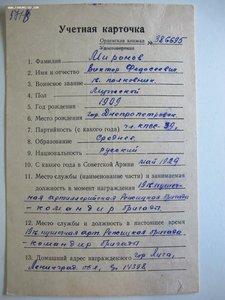 Учетная карточка
Орденская книжка № 386695
Удостоверение
1. Фамилия Миронов
2. Имя и отчество Виктор Федосеевич
3. Воинское звание гв. полковник
4. Пол Мужской
5. Год рождения 1909
6. Место рождения гор. Днепропетровск
7. Партийность (с какого года) чл. КПСС 39г.
8. Образование Среднее
9. Национальность русский
10. С какого года в Советской Армии май 1929
11. Место службы (наименование части) и занимаемая
должность в момент награждения 19 гв. пушеч-
ная артиллерийская Речицкая бригада
- командир бригады
12. Место службы и должность в настоящее время
19 гв. пушечная арт. Речицкая бригада -
- командир бригады
13. Домашний адрес награжденного гор. Луга,
Ленинградская обл.